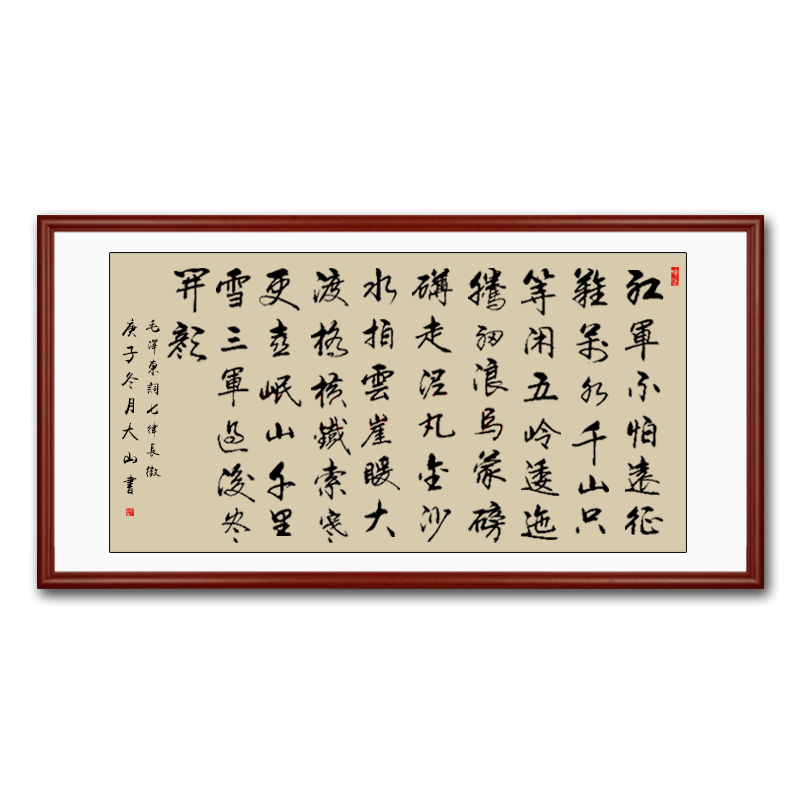 红軍不怕遠征
難萬水千山只
等闲五岭逶迤
騰细浪烏蒙磅
礴走泥丸金沙
水拍雲崖暖大
渡橋橫鐵索寒
更喜岷山千里
雪三軍過後尽
開顏
毛澤東詞七律長徵
庚子冬月大山書